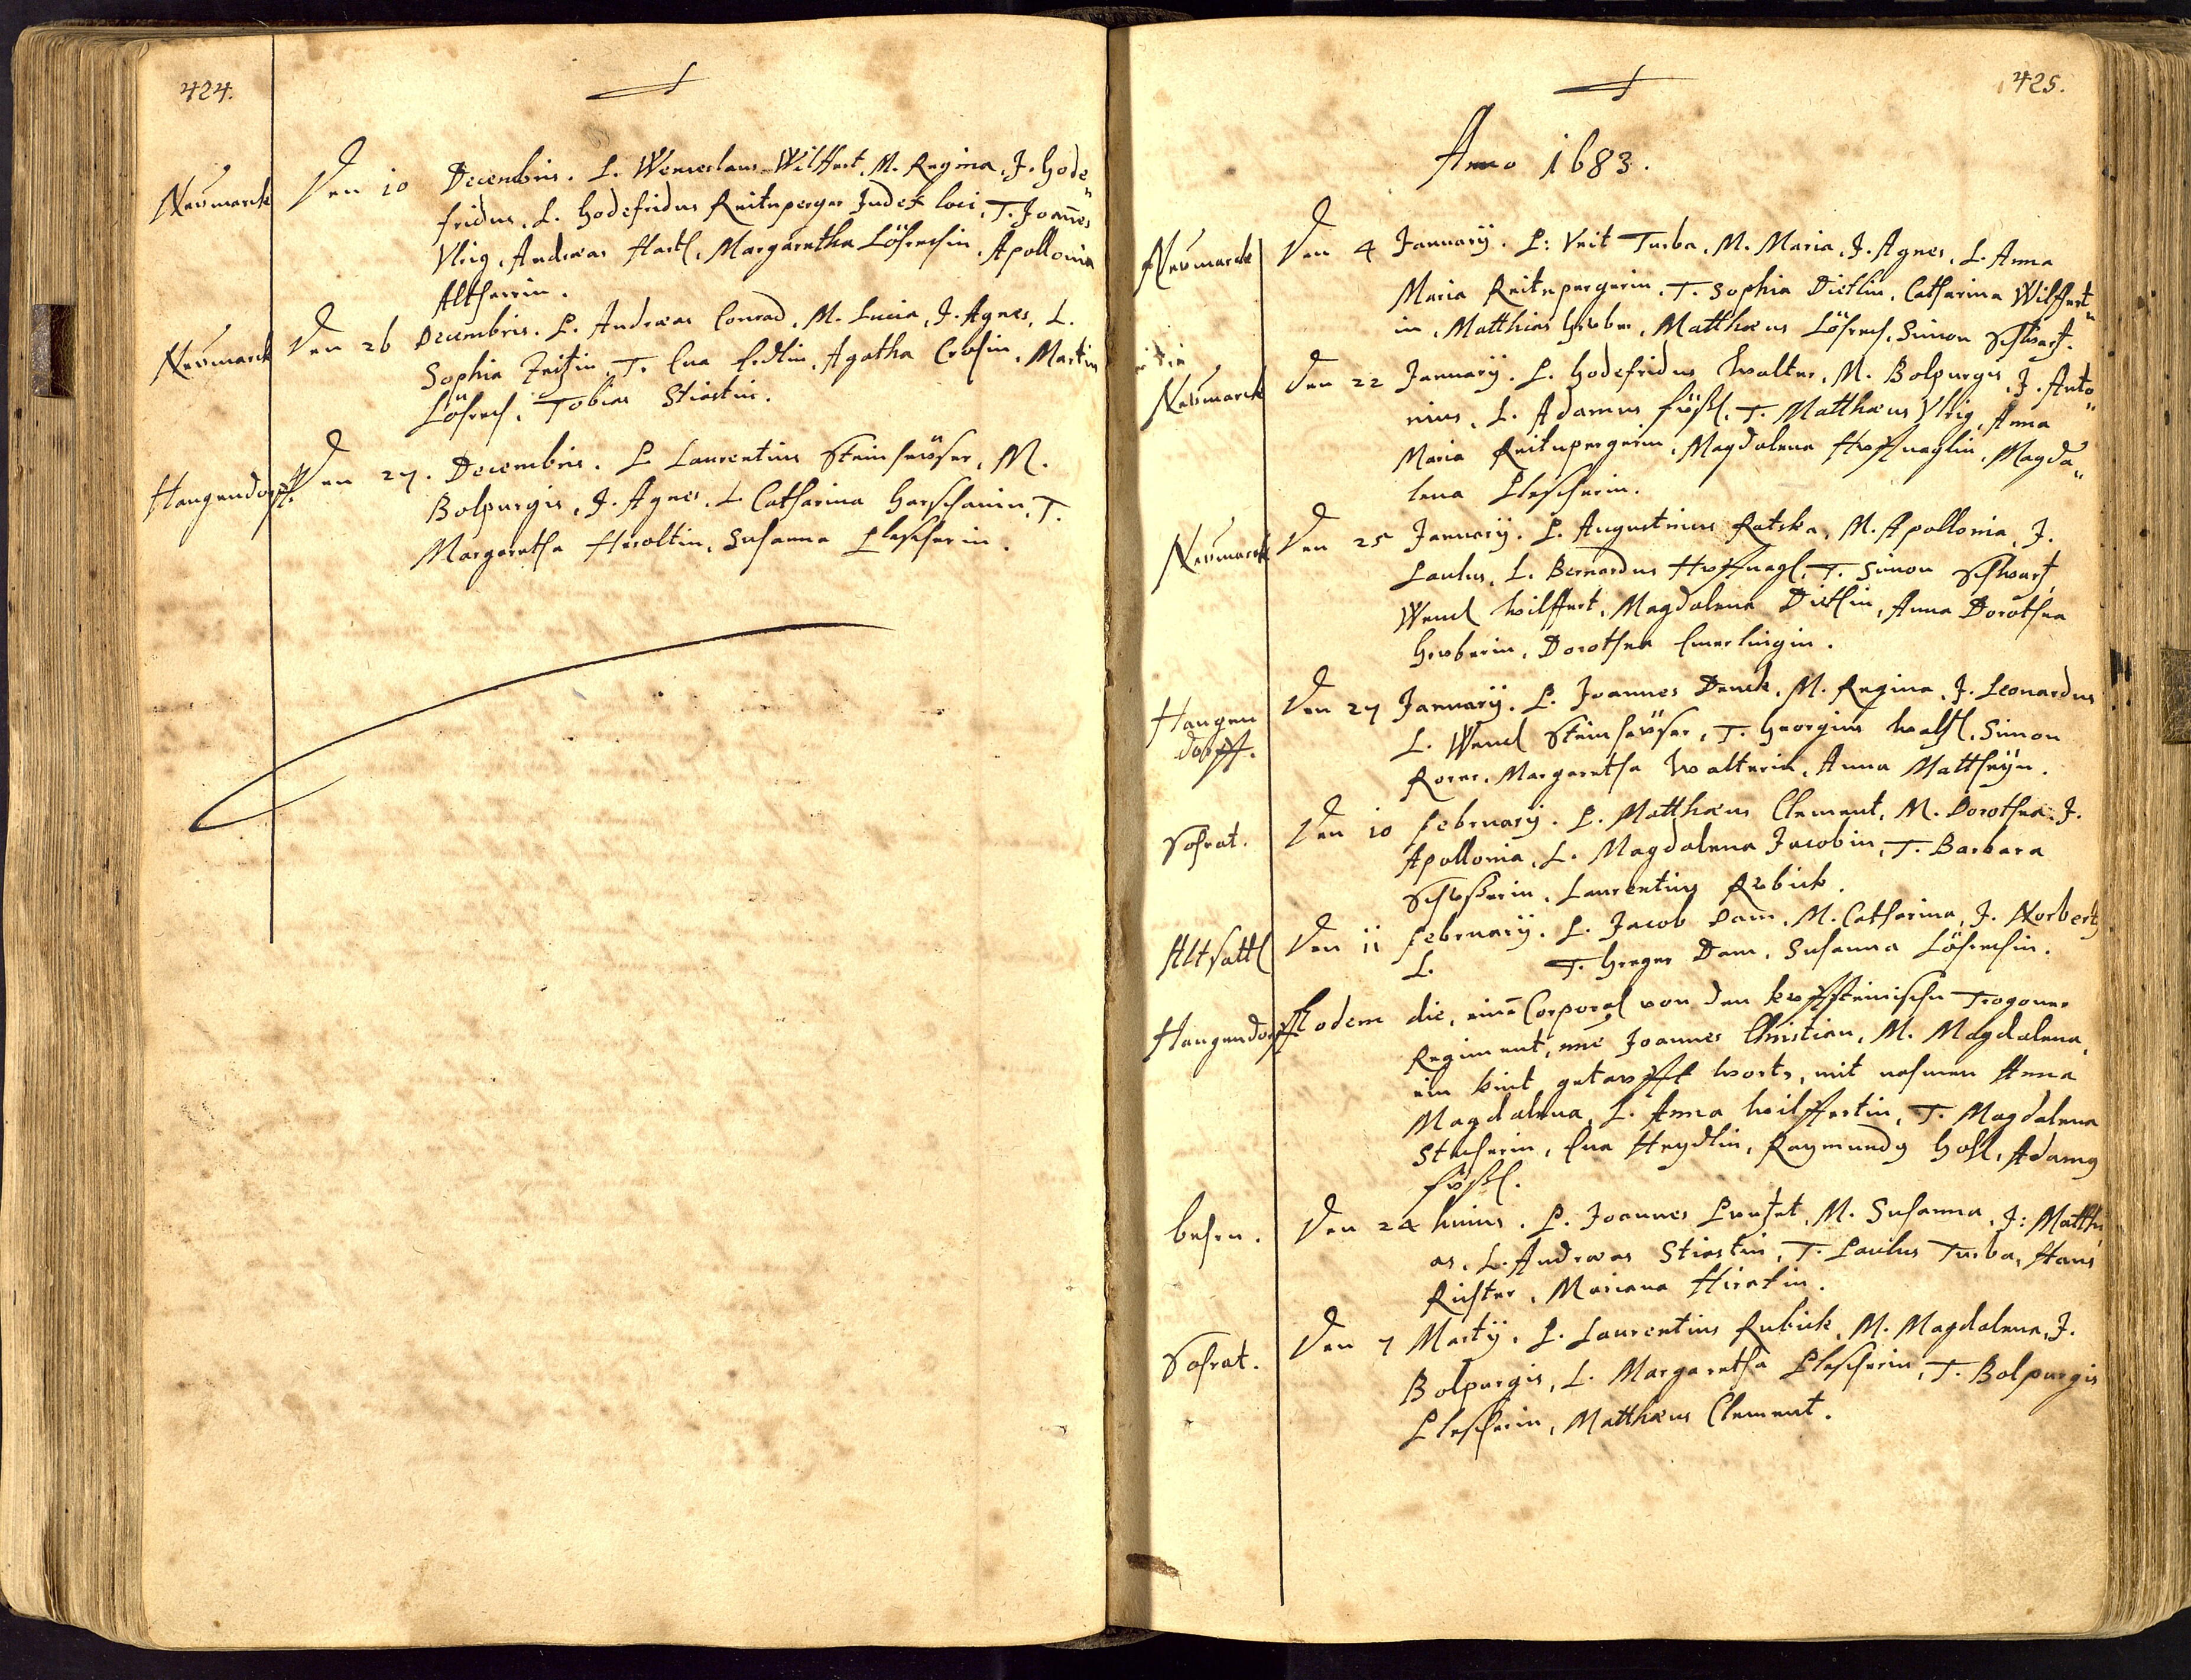 424.
Neumarck
Den 10 Decembris. P. Wenceslaus Wilffert, M. Regina, I. Gode„
fridus, L. Godefridus Reitnperger Judex loci, T. Joannes
Ulrig, Andreas Hartl, Margaretha Löschin, Apollonia
Altherrin.
Neumarck
Den 26 Decembris. P. Andreas Conrad, M. Lucia, I. Agnes, L.
Sophia T. Eva Agatha Martin
Tobias Stiastni.
Hangendorff.
Den 27. Decembris. P. Laurentius Steinheuser, M.
Bolpurgis, I. Agnes, L. Catharina T.
Margaretha Heroltin, Susanna Plescherin.
425.
Anno 1683.
Neumarck
Den 4 Januarij. P: Veit Turba, M. Maria, I. Agnes, L. Anna
Maria Reitnpergerin, T. Sophia Dietlin, Catharina Wilffert„
in, Matthias Gruber, Matthæus Simon Schwartz.
Neumarck
Den 22 Januarij. P. Godefridus Walter, M. Bolpurgis, I. Anto„
nius, L. Adamus Füssl, T. Matthæus Ulrig, Anna
Maria Reitnpergerin, Magdalena Huffnaglin, Magda„
lena Plescherin.
Neumarck
Den 25 Januarij. P. Augustinus Ratska, M. Apollonia, I.
Paulus, L. Bernardus Huffnagl, T. Simon Schwartz,
Wencl Wilffert, Magdalena Dietlin, Anna Dorothea
Gruberin, Dorothea Emerlingin.
Hangen
dorff.
Den 27 Januarij. P. Joannes Denck, M. Regina, I. Leonardus
L. Wencl Steinheuser, T. Georgius Simon
Rorer, Margaretha Walterin, Anna Mattheyin.
Sohrat.
Den 10 Februarij. P. Matthæus Clement, M. Dorothea, I.
Apollonia, L. Magdalena Jacobin, T. Barbara
Schusterin, Laurentius Rubick.
Altsattl
Den 11 Februarij. P. Jacob Dam, M. Catharina, I. Norbert9
L. T. Greger Dam, Susanna
Hangendorff
Eodem die, eine Corporal von den kuffsteinischen Tragoner
Regiment, nne Joannes Christian, M. Magdalena,
ein kint getaufft worte, mit nahmen Anna
Magdalena, L. Anna Wilffertin, T. Magdalena
Stecherin, Eva Heydlin, Raymund9 Adam9
Füssl.
Den 24 huius. P. Joannes M. Susanna, I: Matthi„
as, L. Andreas Stiastni, T. Paulus Turba, Hans
Richter, Mariana
Sohrat.
Den 7 Martij. P. Laurentius Rubick, M. Magdalena, I.
Bolpurgis, L. Margaretha Plescherin, T. Bolpurgis
Plescherin, Matthæus Clement.